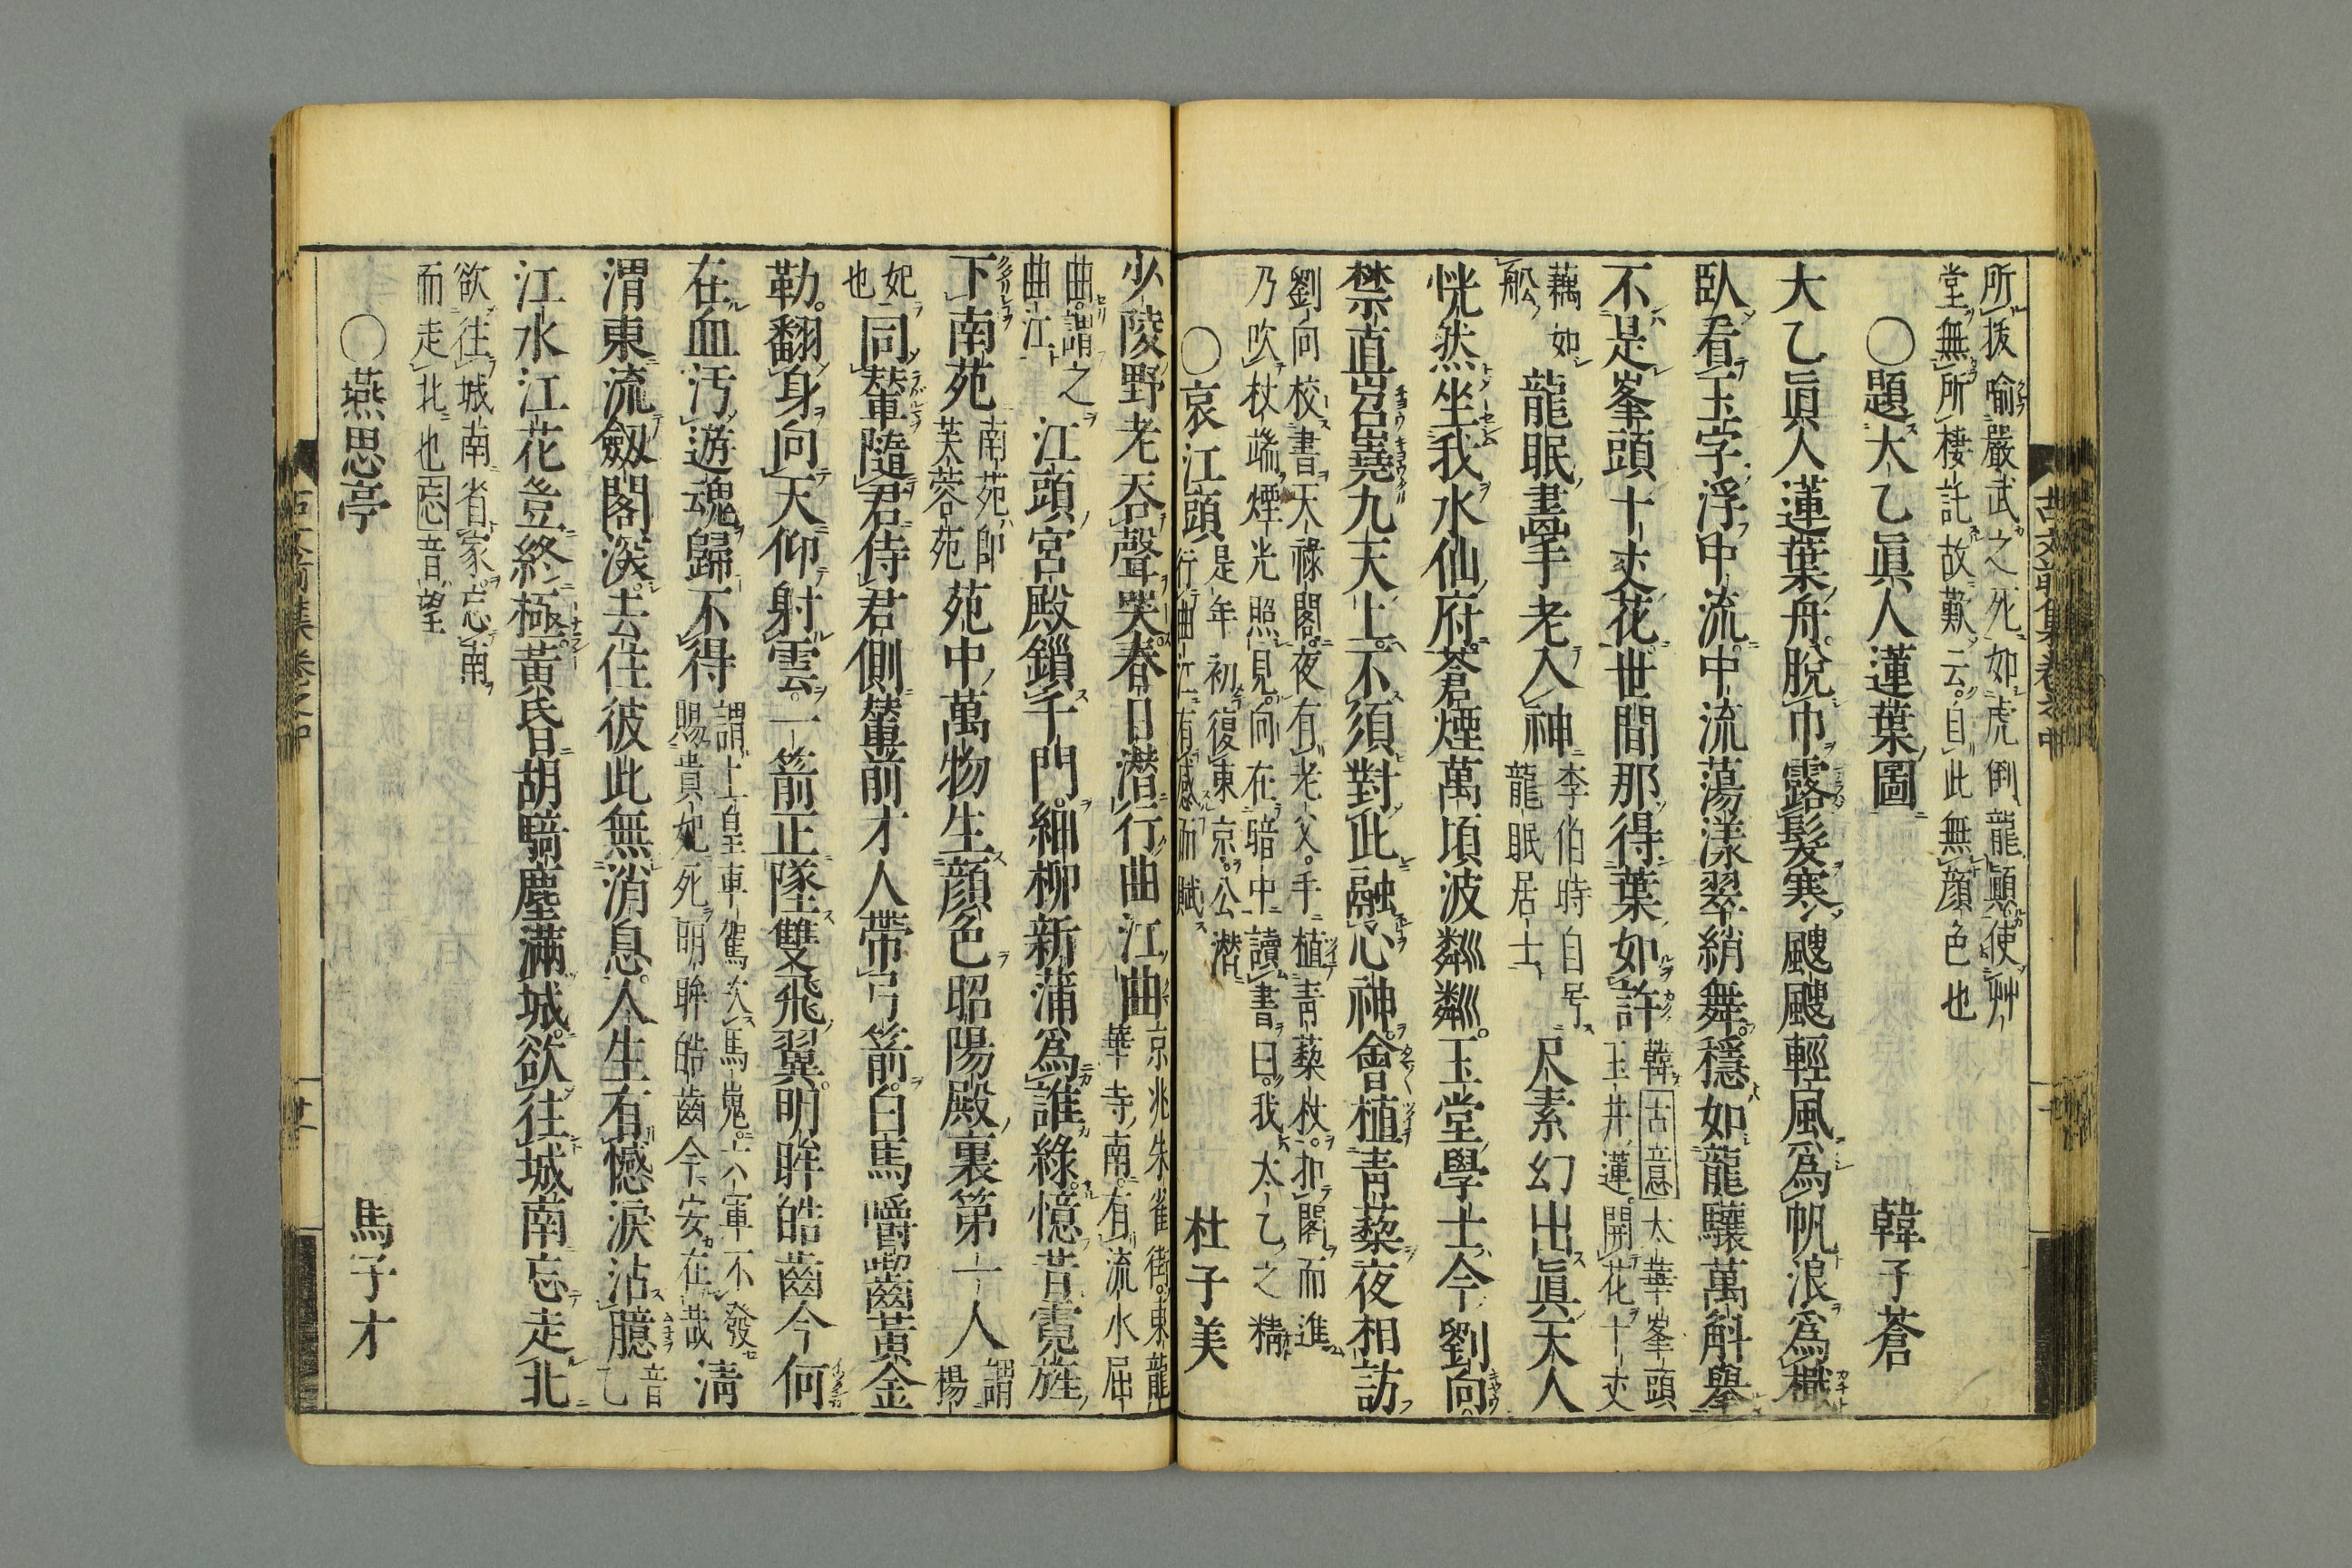 所抜喩嚴武之死如虎倒龍顚使艸
堂無所棲託故歎云自此無顔色也
○題大乙眞人蓮葉圖 韓子蒼
大乙眞人蓮葉舟脫巾露髮寒颼颼輕風爲帆浪爲檝
臥看玉字浮中流中流蕩漾翠綃舞穩如龍驤萬斛擧
不是峯頭十丈花世間那得葉如許
韓古意太華峯頭
玉井蓮開花十丈
藕如
舩
龍眠畫手老入神
李伯時自号
龍眠居士
尺素幻出眞天人
恍然坐我水仙府蒼煙萬頃波粼粼玉堂學士今劉向
禁直岧嶤九天上不須對此融心神會植青藜夜相訪
劉向校書天祿閣夜有老父手植青藜杖扣閣而進
乃吹杖端煙光照見向在暗中讀書曰我太乙之精
○哀江頭
是年初復東京公潜
行曲江有感而賦
杜子美
少陵野老吞聲哭春日潜行曲江曲
京兆朱雀街東龍
華寺南有流水屈
曲謂之
曲江
江頭宮殿鎖千門細柳新蒲爲誰綠憶昔霓旌
下南苑
南苑即
芙蓉苑
苑中萬物生顔色昭陽殿裏第一人
謂
楊
妃
也
同輦隨君侍君側輦前才人帶弓箭白馬嚼齧黃金
勒翻身向天仰射雲一箭正墜雙飛翼明眸皓齒今何
在血汚遊魂歸不得
謂上皇車駕次馬嵬六軍不發
賜貴妃死明眸皓齒今安在哉
淸
渭東流劔閣深去住彼此無消息人生有憾淚沾臆
音
乙
江水江花豈終極黃昏胡騎塵滿城欲往城南忘走北
欲往城南省家忘南
而走北也忘音望
○燕思亭 馬子才
古文前集卷之中